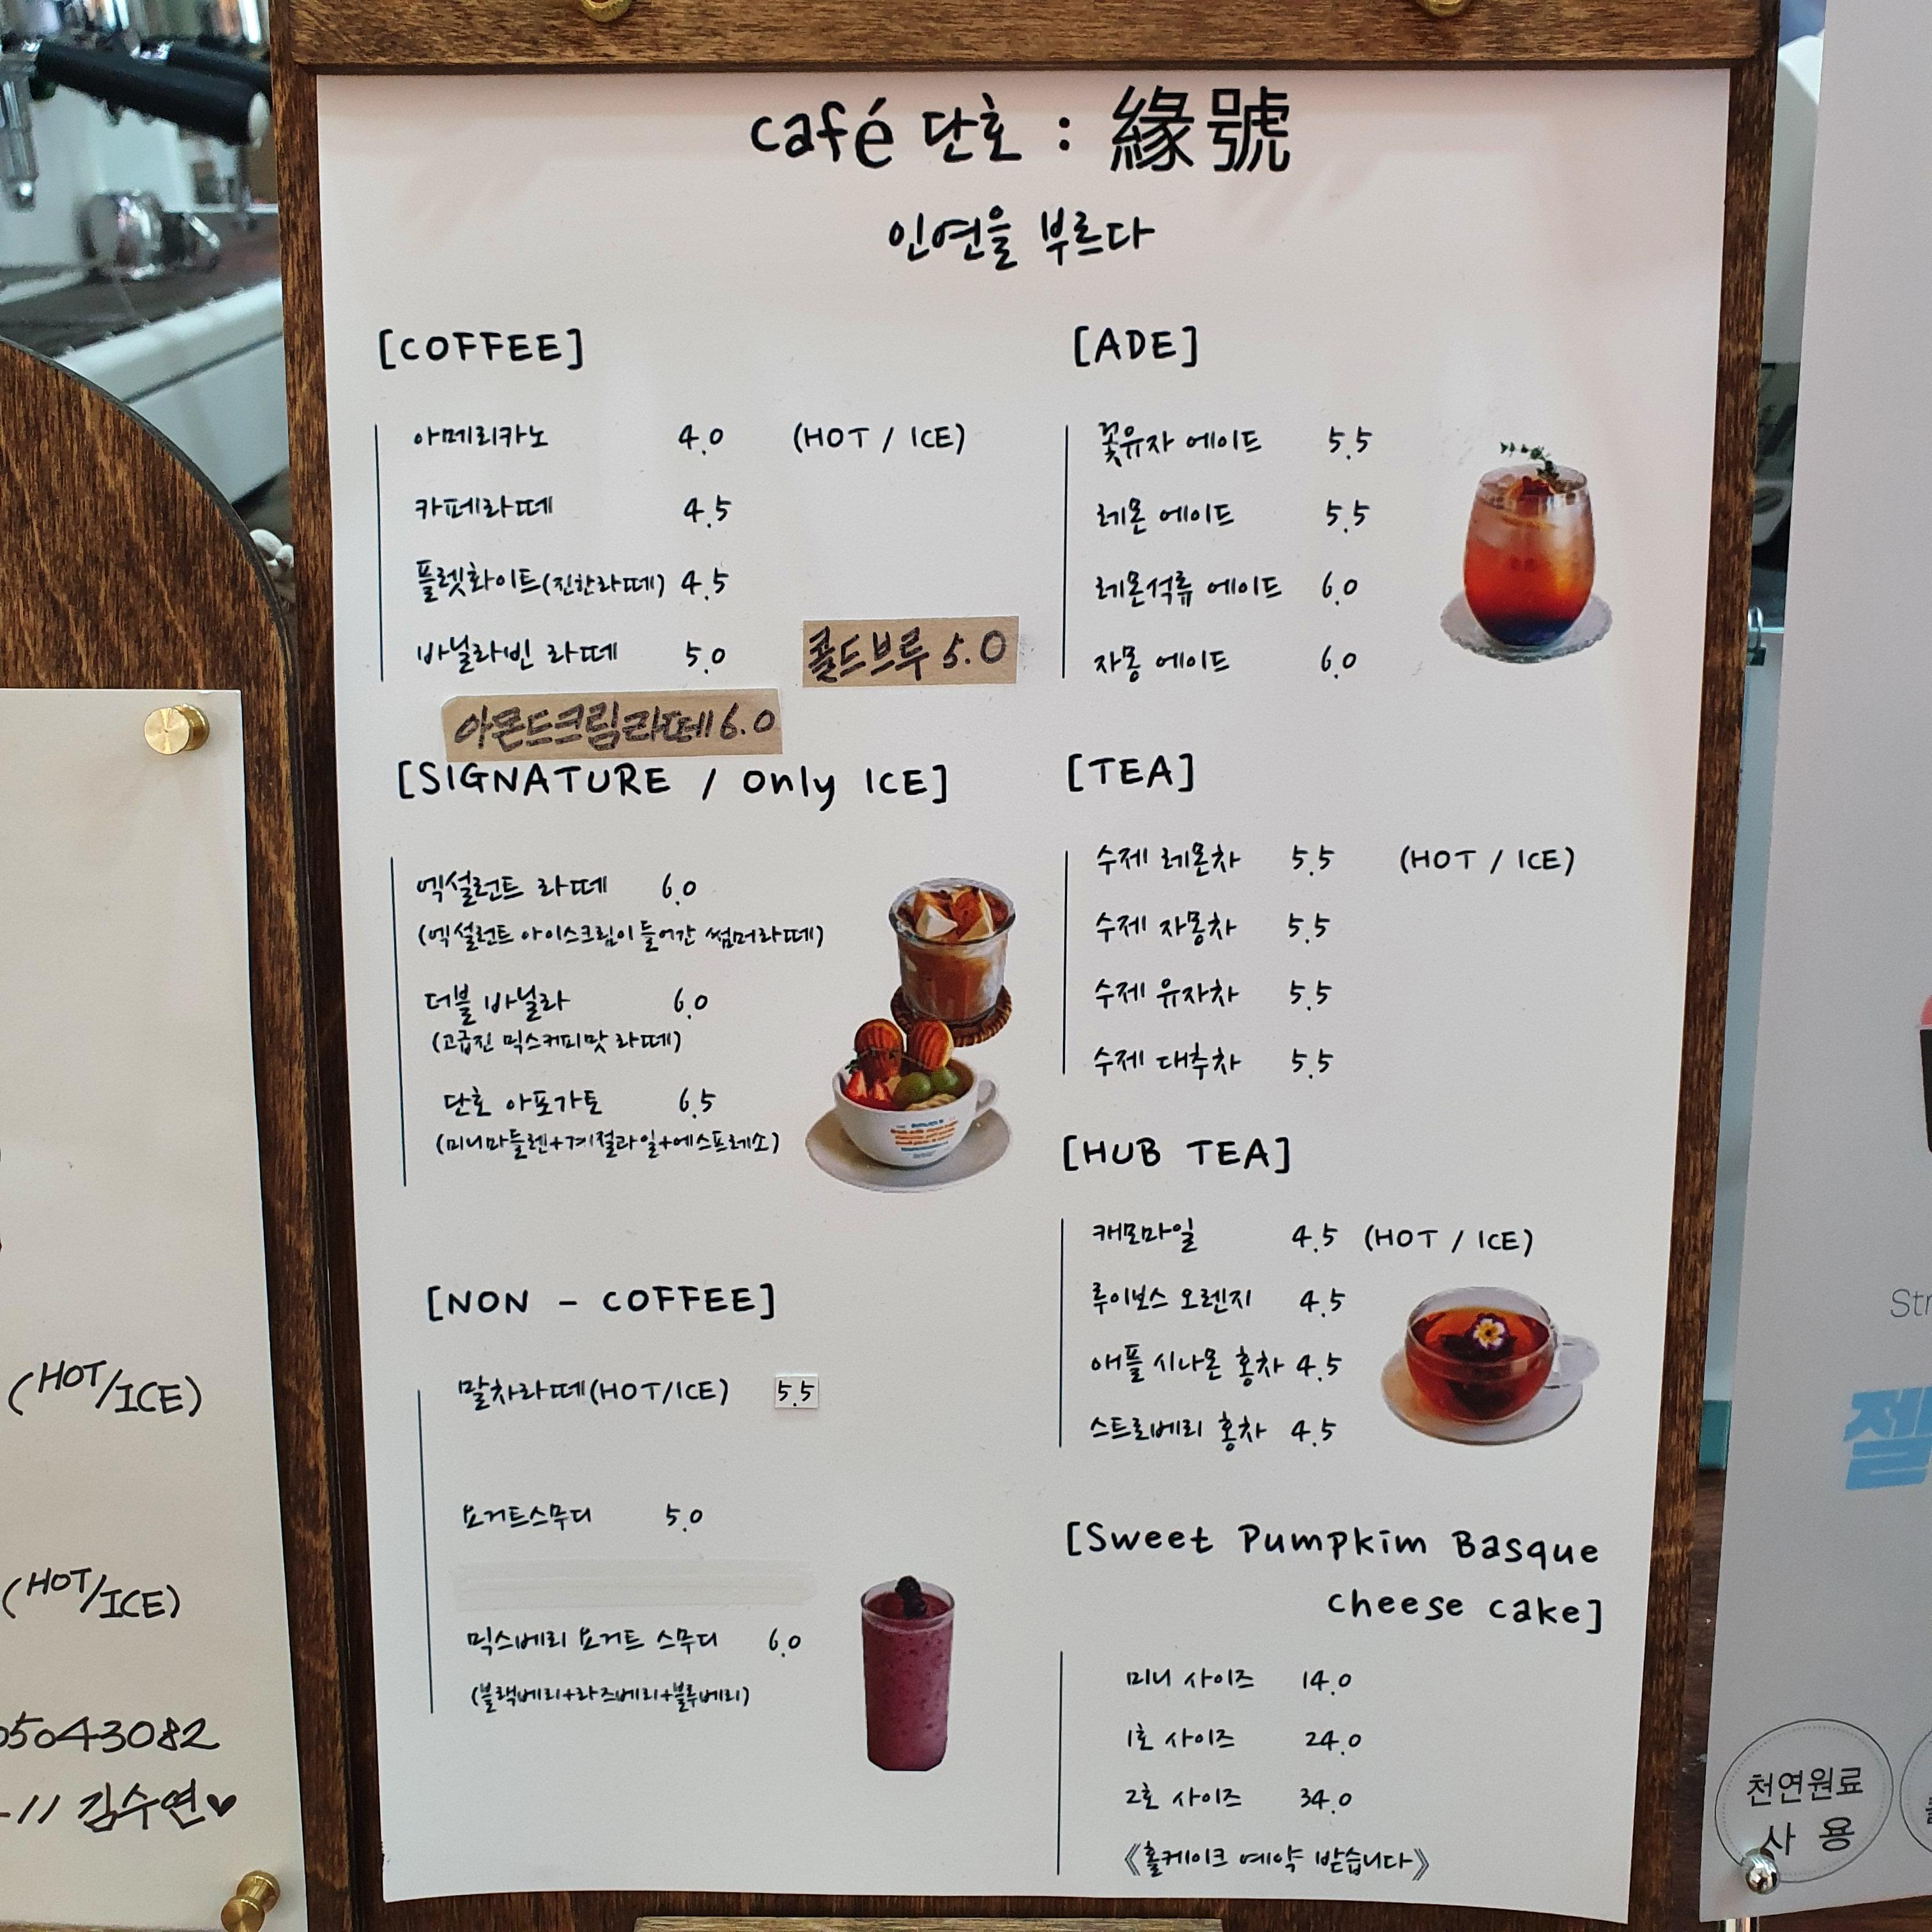 café 단호 : 緣號
인연을 부르다
[COFFEE]
아메리카노 4.0 (HOT / ICE)
카페라떼 4.5
플렛화이트(진한라떼) 4.5
바닐라빈 라떼 5.0
콜드브루 5.0
아몬드크림라떼 6.0
[SIGNATURE / only ICE]
엑설런트 라떼 6.0
(엑설런트 아이스크림이 들어간 썸머라떼)
더블 바닐라 6.0
(고급진 믹스커피맛 라떼)
단호 아포가토 6.5
(미니마들렌+계절과일+에스프레소)
[NON - COFFEE]
말차라떼(HOT/ICE) 5.5
요거트스무디 5.0
믹스베리 요거트 스무디 6.0
(블랙베리+라즈베리+블루베리)
[ADE]
꽃유자 에이드 5.5
레몬 에이드 5.5
레몬석류 에이드 6.0
자몽 에이드 6.0
[TEA]
수제 레몬차 5.5 (HOT / ICE)
수제 자몽차 5.5
수제 유자차 5.5
수제 대추차 5.5
[HUB TEA]
캐모마일 4.5 (HOT / ICE)
루이보스 오렌지 4.5
애플 시나몬 홍차 4.5
스트로베리 홍차 4.5
[Sweet Pumpkim Basque
cheese cake]
미니 사이즈 14.0
1호 사이즈 24.0
2호 사이즈 34.0
《홀케이크 예약 받습니다》
(HOT/ICE)
(HOT/ICE)
5043082
-11 김수연♥
Str
젤
천연원료
사 용